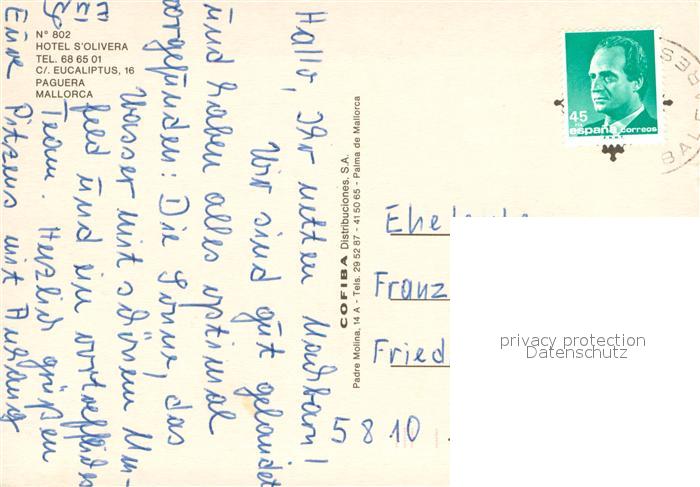 N° 802
HOTEL S'OLIVERA
TEL. 68 65 01
C/. EUCALIPTUS, 16
PAGUERA
MALLORCA
Hallo, Ihr netten Nachbarn!
Wir sind gut gelandet
und haben alles optimal
vorgefunden: Die Sonne, das
Wasser mit schönem Um-
feld und ein vortreffliches
Team. Herzlich grüßen
Eure Pitzens mit Anhang
COFIBA Distribuciones, S.A.
Padre Molina, 14 A - Tels. 29 52 87 - 41 50 65 - Palma de Mallorca
45
españa correos
BALEARES
Eheleute
Franz
Fried
5810
privacy protection
Datenschutz